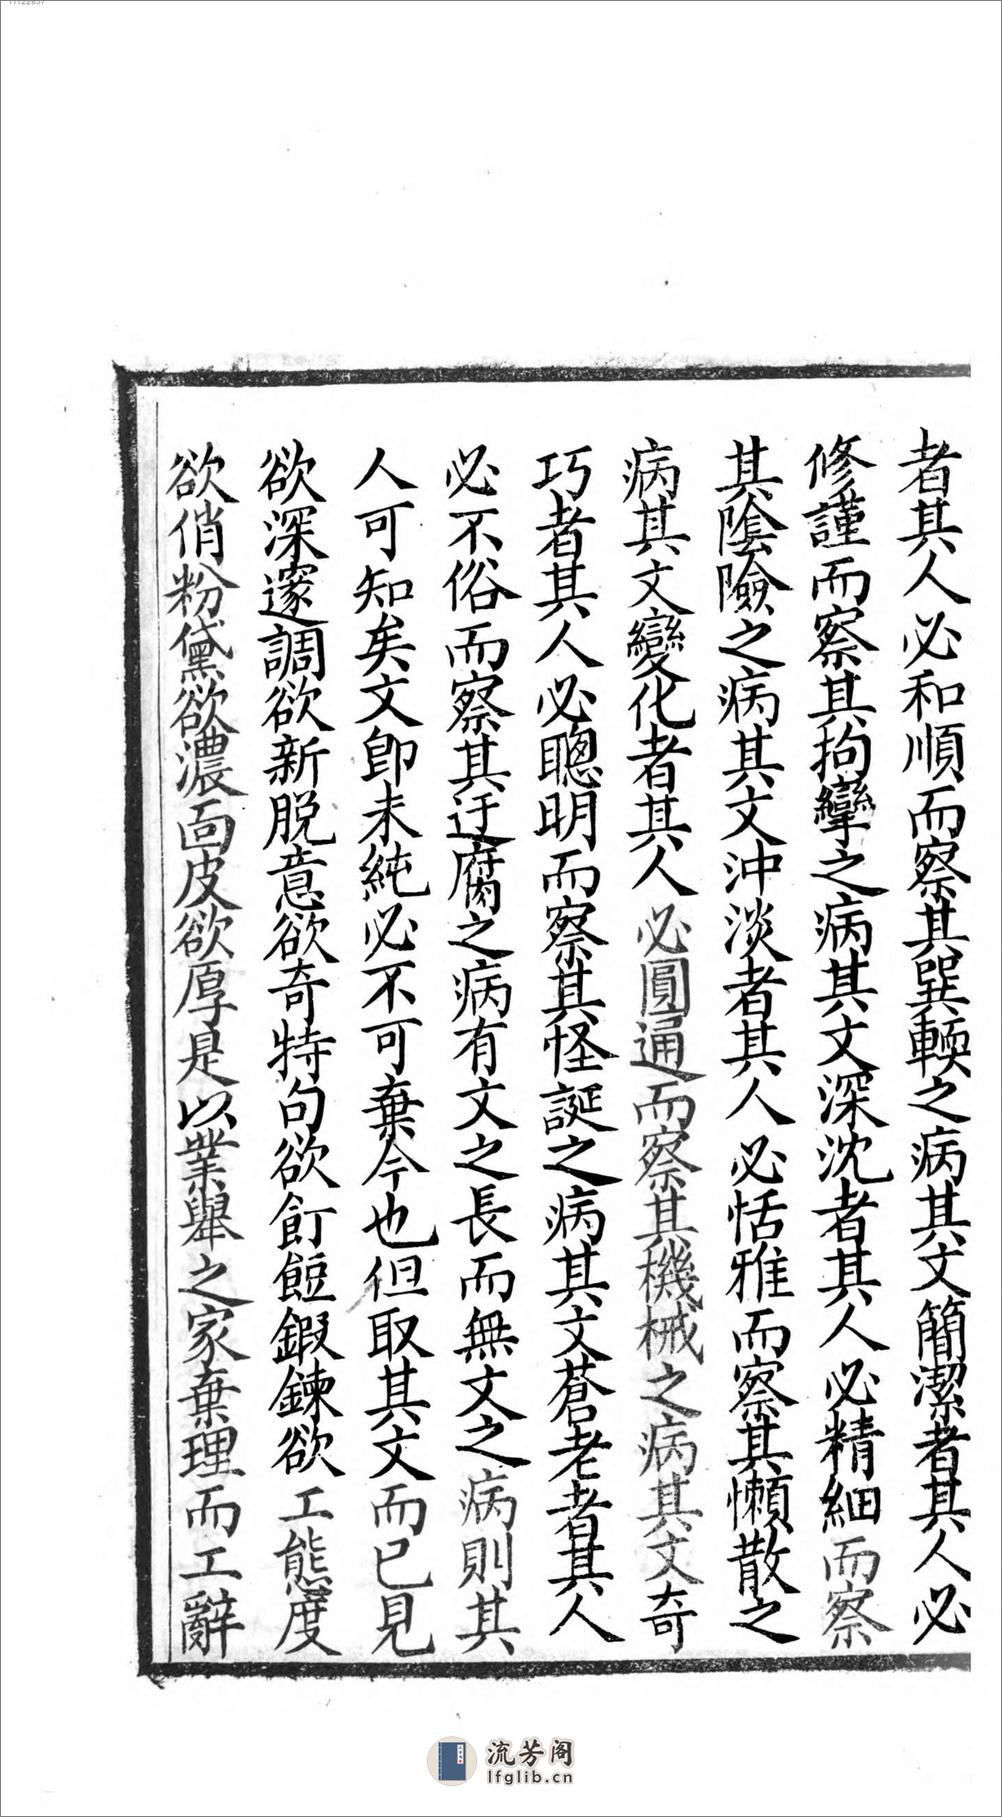 者其人必和順而察其巽輭之病其文簡潔者其人必
修謹而察其拘攣之病其文深沈者其人必精細而察
其陰險之病其文沖淡者其人必恬雅而察其懶散之
病其文變化者其人必圓通而察其機械之病其文奇
巧者其人必聰明而察其怪誕之病其文蒼老者其人
必不俗而察其迂腐之病有文之長而無文之病則其
人可知矣文即未純必不可棄今也但取其文而已見
欲深邃調欲新脫意欲奇特句欲飣餖鍛鍊欲工態度
欲俏粉黛欲濃面皮欲厚是以業舉之家棄理而工辭
流芳阁
lfglib.cn